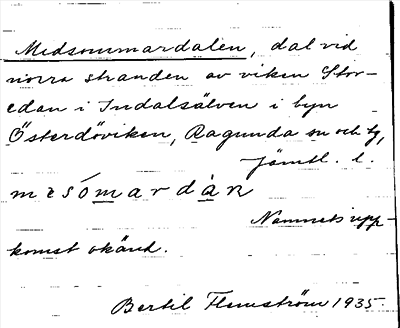 Midsommardalen, dal vid
norra stranden av viken Stor-
edan i Indalsälven i byn
Österdöviken, Ragunda sn och tg,
Jämtl. l.
mesómardàɴ
Namnets upp-
komst okänd.
Bertil Flemström 1935.